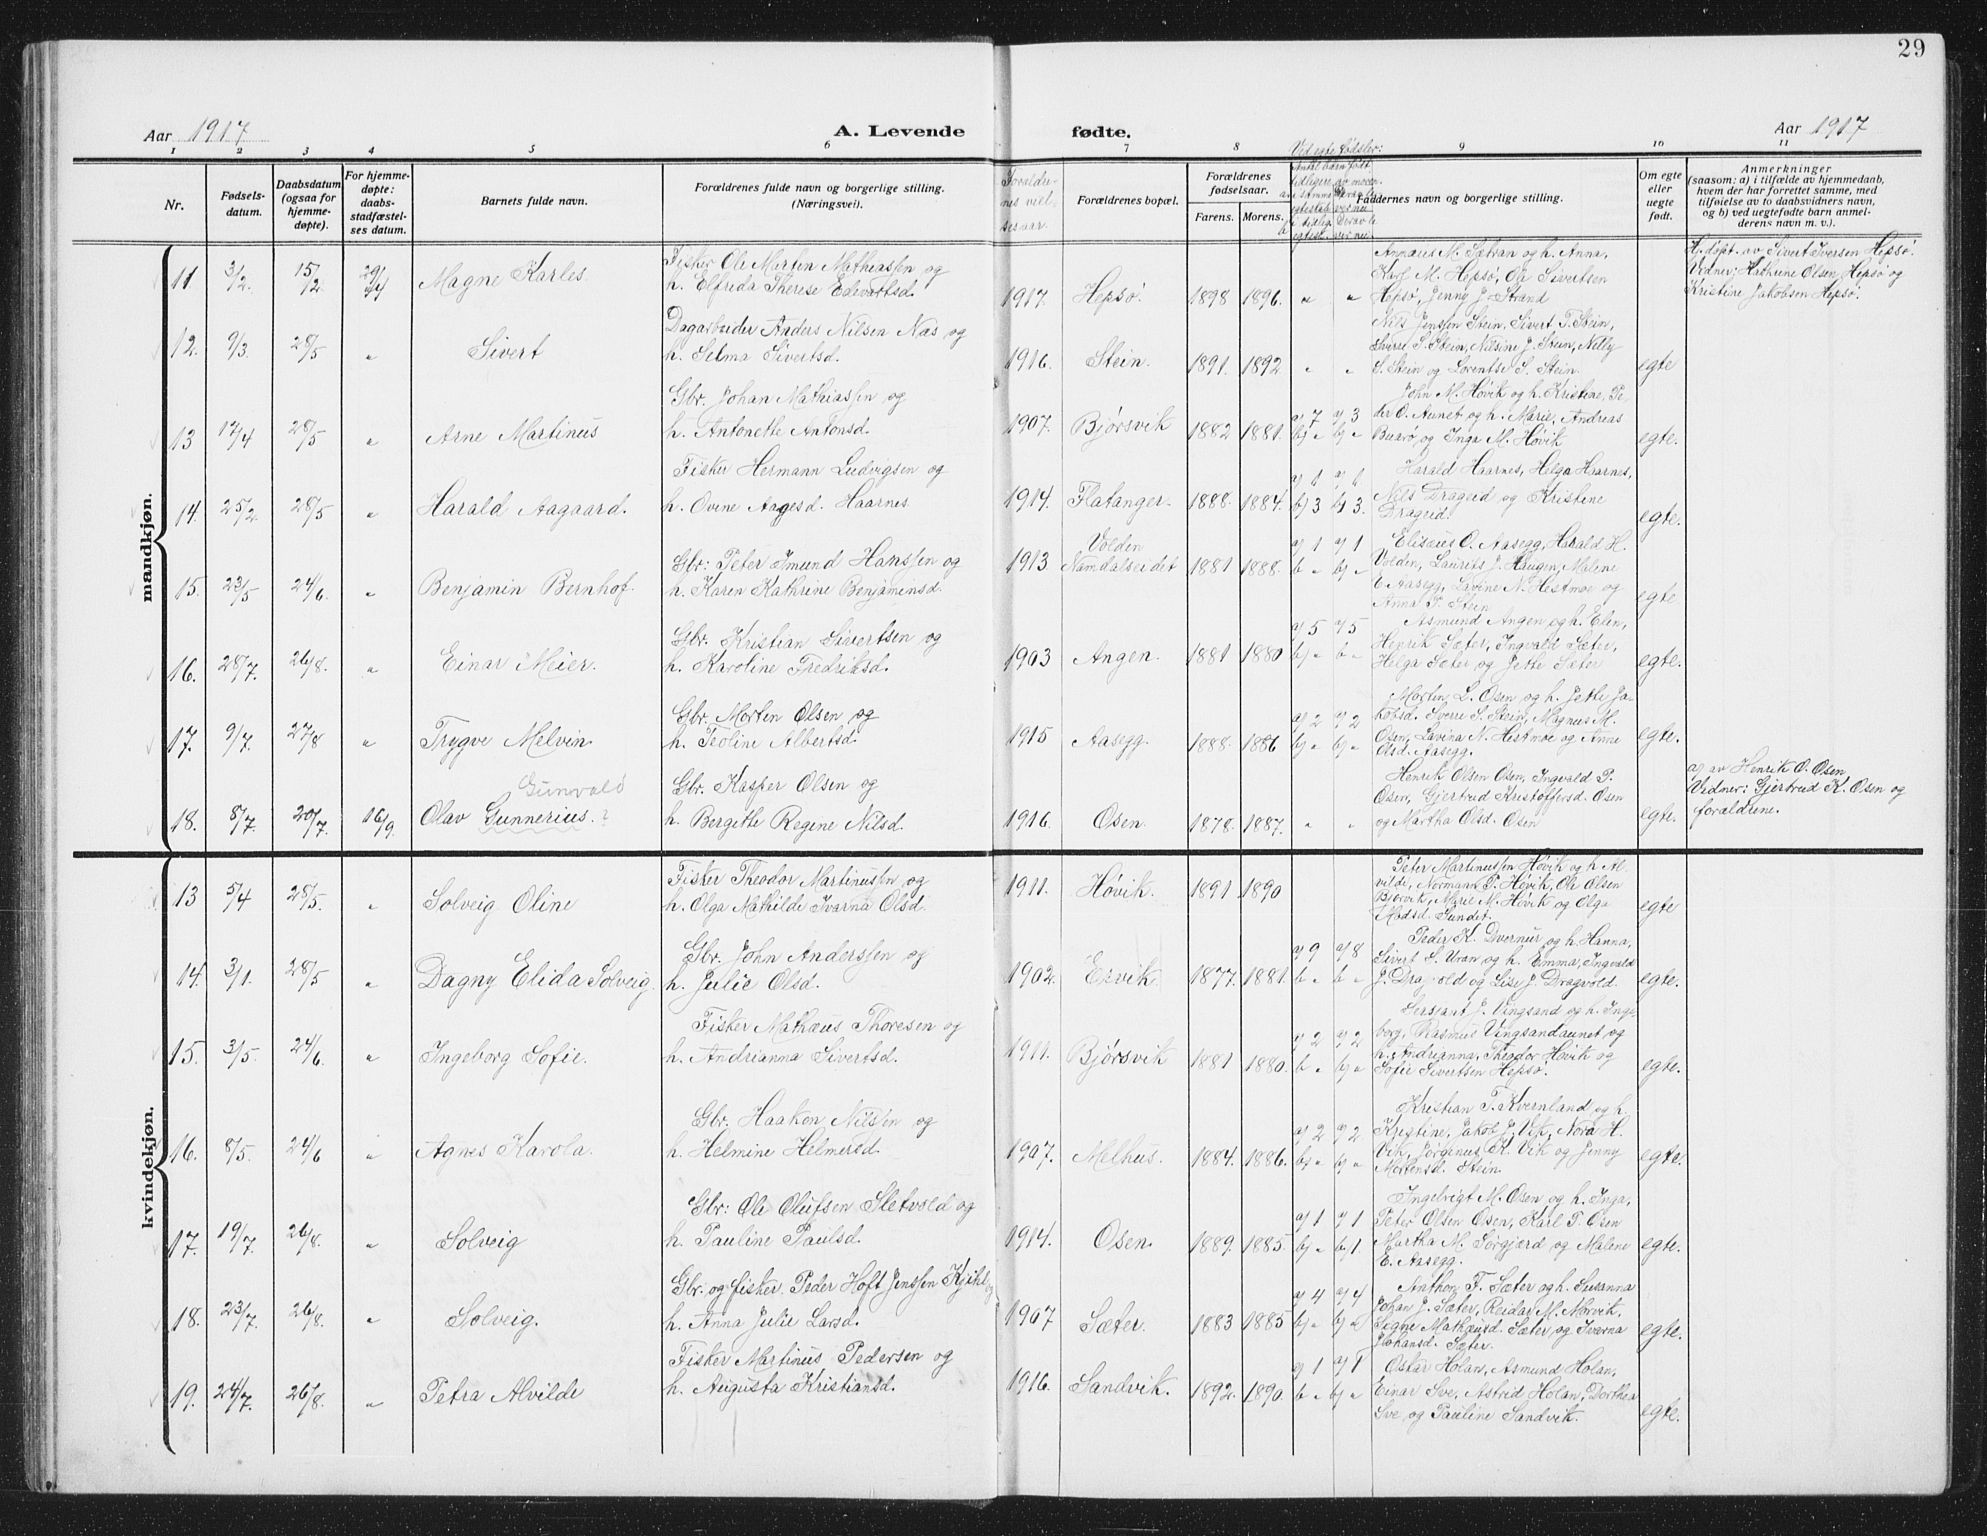 29
Aar 1917 A. Levende fødte. Aar 1917
1 2 3 4 5 6 7 8 9 10 11
Nr.
Fødsels-
datum.
Daabsdatum
(ogsaa for
hjemme-
døpte).
For hjemme-
døpte:
daabs-
stadfæstel-
ses datum.
Barnets fulde navn.
Forældrenes fulde navn og borgerlige stilling.
(Næringsvei).
Forældre-
nes viel-
sesaar.
Forældrenes bopæl.
Forældrenes
fødselsaar.
Farens. Morens.
Ved egte fødsler:
Faddernes navn og borgerlige stilling.
Om egte
eller
uegte
født.
Anmerkninger
(saasom: a) i tilfælde av hjemmedaab,
hvem der har forrettet samme, med
tilføielse av to daabsvidners navn,
og b) ved uegtefødte barn anmel-
derens navn m. v.).
mandkjøn.
11 3/2. 15/2. 29/4 Magne Karles
Fisker Ole Martin Mathiassen og
h. Elfrida Therese Edvartsd.
1917. Hepsø. 1898 1896. " "
Annæus M. Sætran og h. Anna,
Karl M. Hepsø, Ole Sivertsen
Hepsø, Jenny J. Strand
Hj.døpt. av Sivert Iversen Hepsø.
Vidner: Kathrine Olsen Hepsø og
Kristine Jakobsen Hepsø.
12. 9/3. 28/5 " Sivert
Dagarbeider Anders Nilsen Næs og
h. Selma Sivertsd.
1916. Stein. 1891. 1892 " "
Nils Jenssen Stein, Sivert P. Stein,
Sverre S. Stein, Nilsine J. Stein, Nelly
S. Stein og Lorentse S. Stein.
egte
13 17/4 28/5 " Arne Martinus
Gbr. Johan Mathiassen og
h. Antonette Antonsd.
1907. Bjørsvik 1882 1881. a) 7 a) 3
b) " b) "
John M. Høvik og h. Kristine, Pe-
der O. Aunet og h. Marie, Andreas
Buarø og Inga M. Høvik
egte.
14. 25/2 28/5 " Harald Aagaard.
Fisker Hermann Ludvigsen og
h. Ovine Aagesd. Haarnes
1914. Flatanger. 1888. 1884. a) 1 a) 1
b) 3 b) 3.
Harald Haarnes, Helga Haarnes,
Nils Drageid og Kristine
Drageid.
egte.
15. 23/5 24/6. " Benjamin Bernhof.
Gbr: Peter Imund Hanssen og
h. Karen Kathrine Benjaminsd.
1913. Volden
Namdalseidet 1881 1888. a) 1 a) 1
b " b) "
Elisæus O. Aasegg, Harald H.
Volden, Laurits J. Haugen, Malene
E. Aasegg, Lavine N. Hestmoe og
Anna P. Stein
egte
16. 28/7. 26/8. " Einar Meier.
Gbr. Kristian Sivertsen og
h. Karoline Fredriksd.
1903 Angen. 1881 1880 a) 5 a) 5
b) " b "
Asmund Angen og h. Elen,
Henrik Sæter, Ingvald Sæter,
Helga Sæter og Jette Sæter
egte.
17. 9/7. 27/8 " Trygve Melvin
Gbr. Morten Olsen og
h. Teoline Albertsd.
1915 Aasegg. 1888. 1886 a) 2 a) 2
b) " b) "
Martin L. Osen og h. Jette Ja-
kobsd. Sverre S. Stein, Magnus M.
Osen, Lavina N. Hestmoe og Anne
Olsd. Aasegg.
egte.
Gunvald
18. 8/7. 20/7. 16/9. Olav Gunnerius. ?
Gbr. Kasper Olsen og
h. Bergitte Regine Nilsd.
1916. Osen. 1878. 1887. " "
Henrik Olsen Osen, Ingvald P.
Osen, Gjertrud Kristoffersd. Osen
og Martha Olsd. Osen
egte.
a) av Henrik O. Osen
Vidner: Gjertrud K. Osen og
forældrene.
kvindekjøn.
13 5/4 28/5. " Solveig Oline
Fisker Theodor Martinussen og
h. Olga Mathilde Ivarna Olsd.
1911. Høvik. 1891 1890
Peter Martinussen Høvik og h. Al-
vilde, Normann P. Høvik, Ole Olsen
Bjørvik, Marie M. Høvik og Olga
Madsd. Sundet.
egte
14. 3/1. 28/5 " Dagny Elida Solveig.
Gbr. John Anderssen og
h. Julie Olsd.
1902. Ervik. 1877. 1881. a) 9 a) 8
b " b "
Peder K. Dvernur og h. Hanna,
Sivert S. Uran og h. Emma, Ingvald
J. Dragvold og Lise J. Dragvold.
egte.
15. 3/5. 24/6. " Ingeborg Sofie.
Fisker Mathæus Thoresen og
h. Andrianna Sivertsd.
1911. Bjørsvik 1881 1880. a) 2 a) 2
b " b) "
Sersjant J. Vingsand og h. Inge-
borg, Rasmus Vingsandaunet og
h. Andrianna, Theodor Høvik og
Sofie Sivertsen Hepsø.
egte.
16. 8/5. 24/6 " Agnes Karola.
Gbr. Haakon Nilssen og
h. Helmine Helmersd.
1907. Melhus. 1884. 1886. a) 2 a) 2
b) " b) "
Kristian T. Kvernland og h.
Kristine, Jakob J. Vik, Nora H.
Vik, Jørginus K. Vik og Jenny
Mortensd. Stein.
egte.
17. 19/7. 26/8. " Solveig
Gbr: Ole Olufsen Sletvold og
h. Pauline Paulsd.
1914. Osen. 1889. 1885. a) 1 a) 1
b) " b) 1.
Ingebrigt M. Osen og h. Inga,
Peter Olsen Osen, Karl P. Osen
Martha M. Sørgjærd og Malene
E. Aasegg.
egte.
18. 23/7. 26/8. " Solveig.
Gbr. og fisker. Peder Hoft Jenssen
h. Anna Julie Larsd.
1907 Sæter. 1883 1885 a) 4 a) 4
b) " b) "
Anthon F. Sæter og h. Susanna
Johan J. Sæter, Reidar M. Morvik,
Signe Mathæusd. Sæter og Ivarna
Johansd. Sæter.
egte.
19. 24/7. 26/8. " Petra Alvilde
Fisker Martinus Pedersen og
h. Augusta Kristiansd.
1916. Sandvik. 1892. 1890. a) 1 a) 1
b " b) "
Oskar Holan, Asmund Holan,
Einar Sve, Astrid Holan, Dorthea
Sve og Pauline Sandvik.
egte.